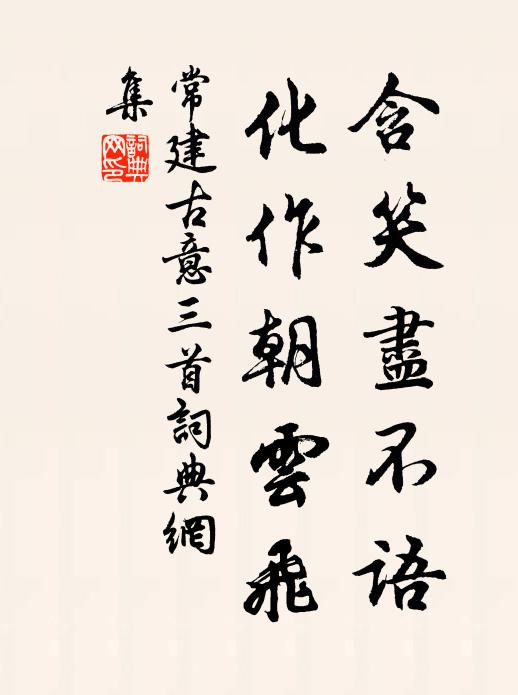 含笑盡不語
化作朝雲飛
常建古意三首詞典網
集
詞典網印